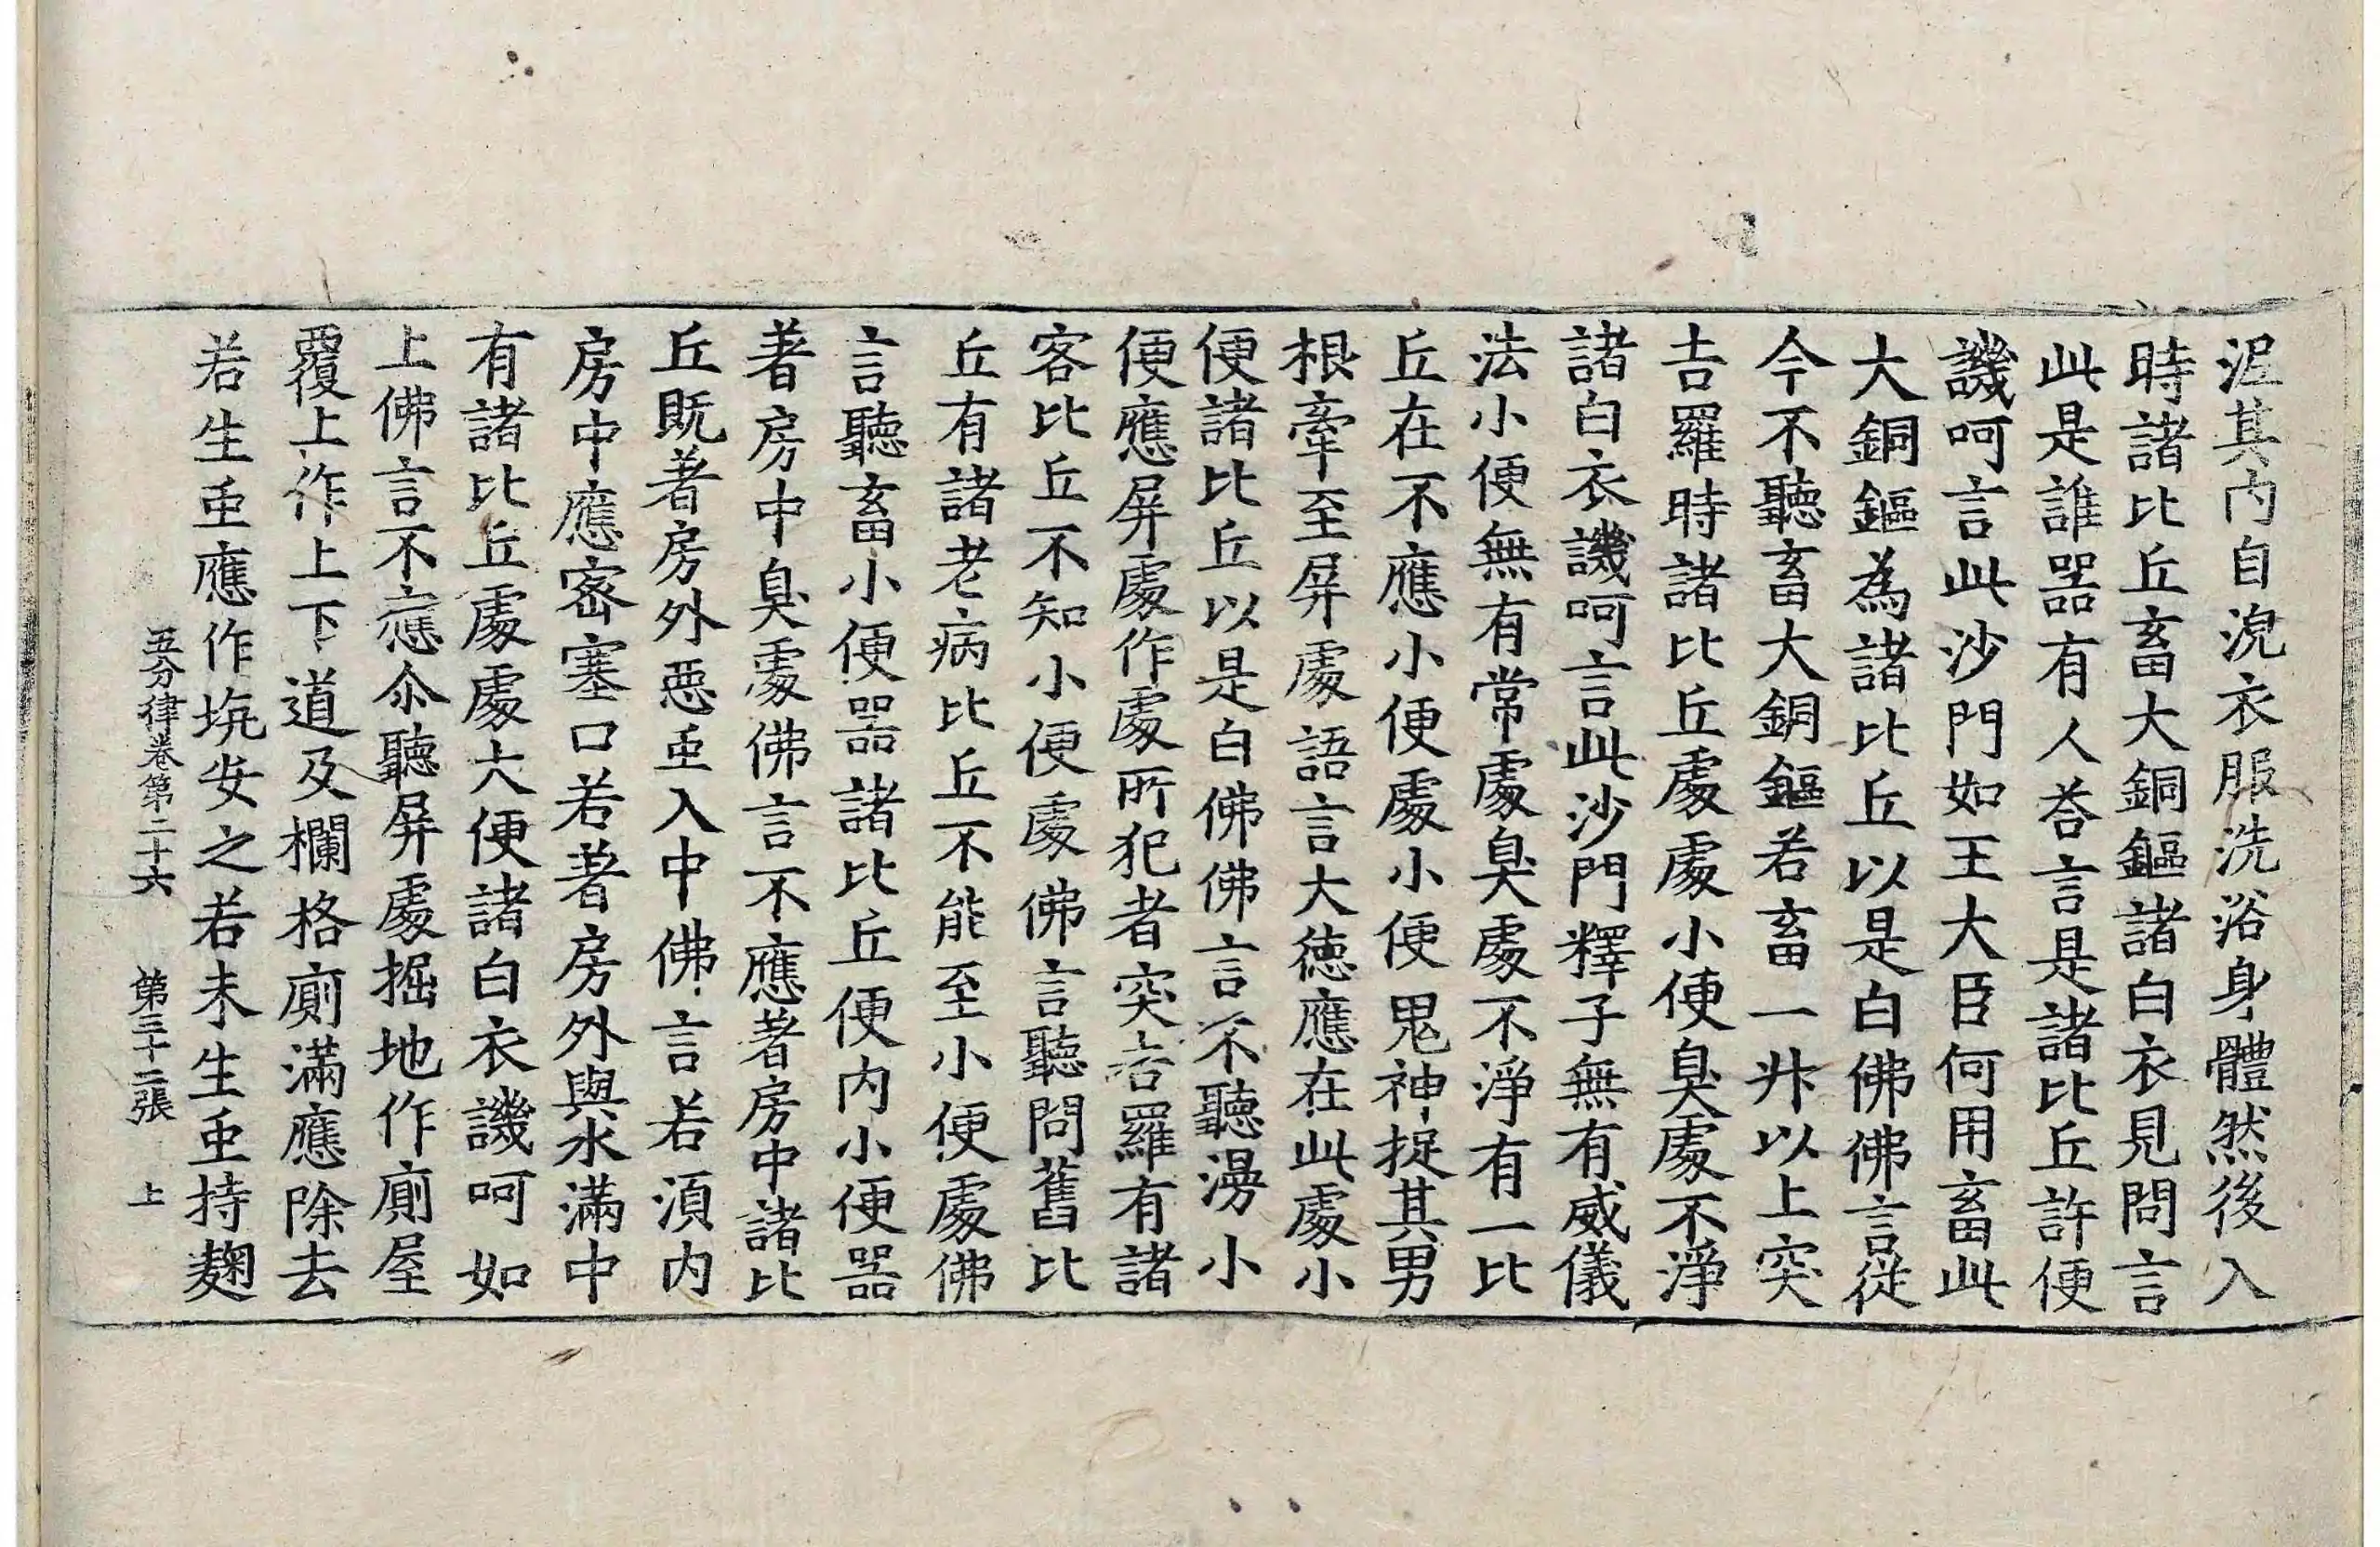 泥其內自浣衣服洗浴身體然後入
時諸比丘畜大銅鏂諸白衣見問言
此是誰器有人荅言是諸比丘許便
譏呵言此沙門如王大臣何用畜此
大銅鏂為諸比丘以是白佛佛言從
今不聽畜大銅鏂若畜一升以上突
吉羅時諸比丘處處小便臭處不淨
諸白衣譏呵言此沙門釋子無有威儀
法小便無有常處臭處不淨有一比
丘在不應小便處小便鬼神捉其男
根牽至屏處語言大德應在此處小
便諸比丘以是白佛佛言不聽漫小
便應屏處作處所犯者突吉羅有諸
客比丘不知小便處佛言聽問舊比
丘有諸老病比丘不能至小便處佛
言聽畜小便器諸比丘便內小便器
著房中臭處佛言不應著房中諸比
丘既著房外惡虫入中佛言若須內
房中應密塞口若著房外與水滿中
有諸比丘處處大便諸白衣譏呵如
上佛言不應尒聽屏處掘地作廁屋
覆上作上下道及欄格廁滿應除去
若生虫應作坑安之若未生虫持麴
五分律卷第二十六 第三十二張 上